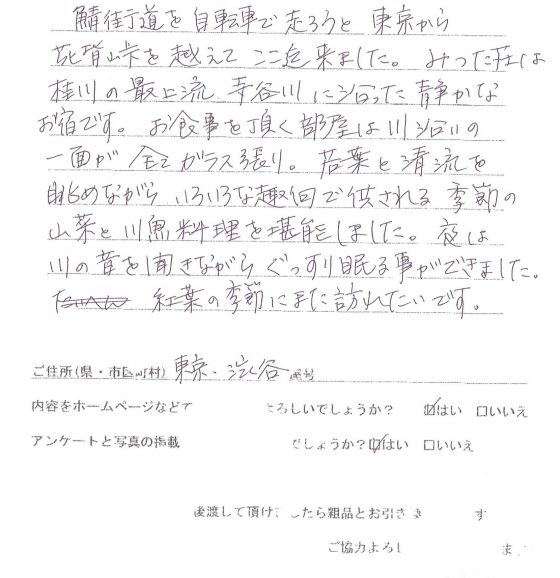 鯖街道を自転車で走ろうと東京から
花背峠を越えてここ迄来ました。みつた荘は
桂川の最上流 寺谷川に沿った静かな
お宿です。お食事を頂く部屋は川沿いの
一面が全てガラス張り。若葉と清流を
眺めながらいろいろな趣向で供される季節の
山菜と川魚料理を堪能しました。夜は
川の音を聞きながらぐっすり眠る事ができました。
紅葉の季節にまた訪れたいです。
ご住所(県・市区町村) 東京・渋谷 番号
内容をホームページなどで ろしいでしょうか? ☑はい □いいえ
アンケートと写真の掲載 でしょうか? ☑はい □いいえ
後渡して頂け したら粗品とお引き す
ご協力よろし ま